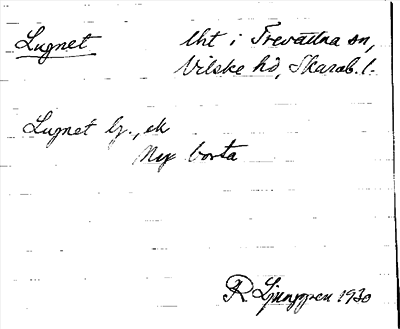 Lugnet
lht i Trevattna sn,
Vilske hd, Skarab. l.
Lugnet lg., ek
Nyx borta
R Ljunggren 1930